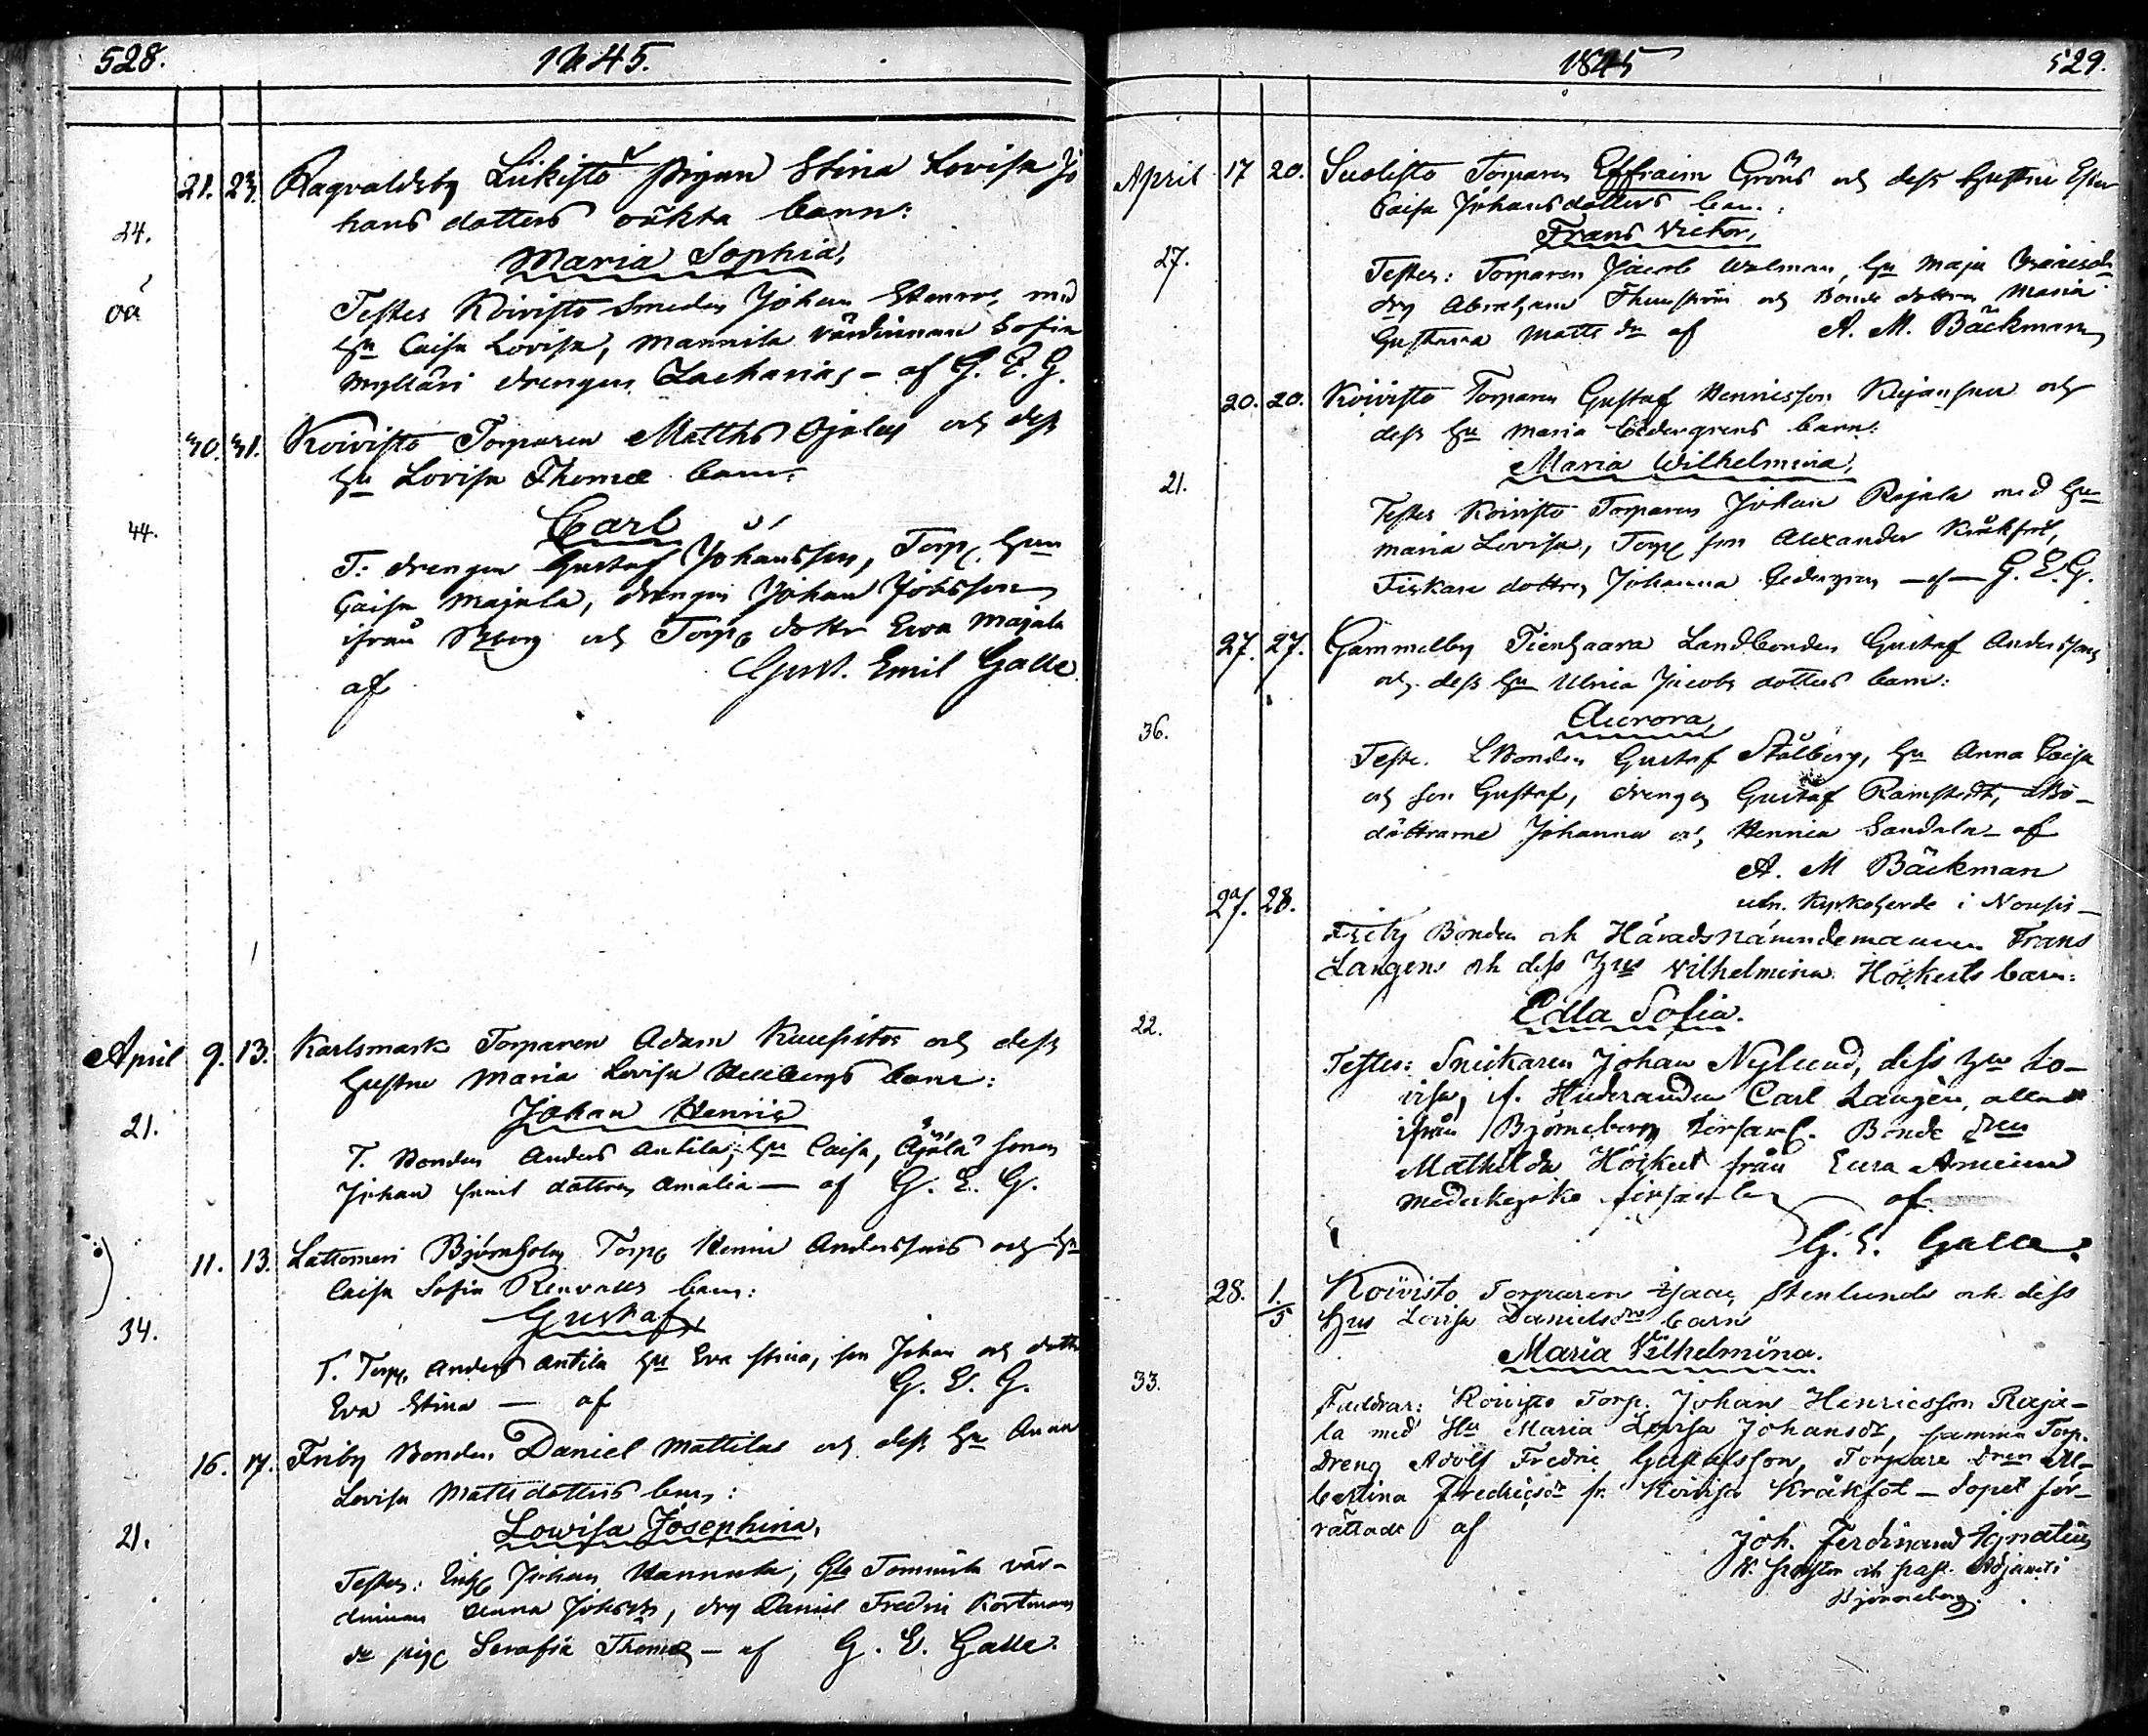 528. 1845.
21. 23. Ragvaldsby Lukisto pigan Stina Lovisa Jo
hans dotters oäkta barn:
24.
Maria Sophia,
oä
Testes Koivisto Smeden Johan Stenros, med
hu Caisa Lovisa, Mannila värdinnan Sofia
Mylläri drengen Zacharias - af G. E. G.
30. 31. Koivisto Torparen Matths Ojalas och dess
hu Lovisa Thomæ barn:
44. Carl
T: drengen Gustaf Johansson, Torp. hun
Caisa Majala, drengen Johan Jobsson
ifrån och Torp dottr Eva Majala
af Gust. Emil Galle
April 9. 13. Karlsmark Torparen Adam Kuusistos och dess
hustru Maria Lovisa barn:
Johan Henric
21.
T. Bonden Anders Antila, hu Caisa, Äjälä sonen
Johan samt dottren Amalia — af G. E. G.
11. 13. Lattomeri Björnholm Torp Henric Anderssons och hu
Caisa Sofia Renvalls barn:
Gustaf,
34.
T. Torp. Anders Antila hu Eva Stina, son Johan och dottr
Eva Stina — af G. E. G.
16. 17. Friby Bonden Daniel Mattilas och dess hu Anna
Lovisa Matts dotters barn:
Lowisa Josephina,
21.
Testes: Johan Hannula, Gla Tommila vär-
dinnan Anna Johsdr, drg Daniel Fredric Kortman
do pig Serafia Thomæ - af G. E. Galle.
1845 529.
April 17 20. Suolisto Torparen Effraim Gröns och dess hustru
Caisa Johansdotters barn:
Frans Victor,
27.
Testes: Torparen Jacob Walman, hu Maja
drg Abraham och Bonde dottren Maria
Gustava Matts dr af A. M. Bäckman
20. 20. Koivisto Torparen Gustaf Henricsson och
dess hu Maria Cedergrens barn:
Maria Wilhelmina,
21.
Testes Koivisto Torparen Johan Rajala med hu
Maria Lovisa, Torp son Alexander Kråkfot,
Fiskare dottren Johanna Cedergren — af — G. E. G.
27. 27. Gammelby Tiensaara Landbonden Gustaf Anderssons
och dess hu Ulrica Jacobs dotters barn:
Aurora,
36.
Teste. LBonden Gustaf Stålberg, hu Anna Caisa
och son Gustaf, drengen Gustaf Ramstedt,
döttrarne Johanna och Henrica Sandala - af
A. M Bäckman
utn. Kyrkoherde i
27. 28. Friby Bonden och Häradsnämndemannen Frans
Langens och dess hus Vilhelmina Höckerts barn:
Edla Sofia.
22.
Testes: Snickaren Johan Nylund, dess hu Lo-
visa, Carl Langen, alla
ifrån Björneborg församl. Bonde dren
Mathilda Höckert från Eura
församling af
G. E. Galle.
28. 1/5 Koivisto Torparen Isaac Stenlunds och dess
hus Lovisa Danielsdrs barn
Maria Vilhelmina.
33.
Faddrar: Koivisto Torp. Johan Henricsson Raja-
la med Hu Maria Lovisa Johansdr, samma Torp.
dreng Adolf Fredric Gustafsson, Torpare dren Al-
bertina Fredricsdr fr. Koivisto Kråkfot - Dopet för-
rättadt af Joh. Ferdinand Ignatius
V. Pastor och past. Adjunct i
Björneborg.